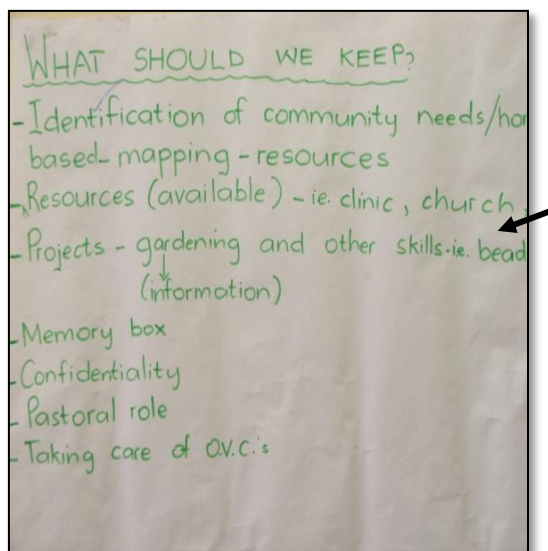 WHAT SHOULD WE KEEP?
- Identification of community needs/hom
based-mapping - resources
- Resources (available) - ie. clinic, church,
- Projects - gardening and other skills. ie. bead
(information)
- Memory box
- Confidentiality
- Pastoral role
- Taking care of O.V.C.'s